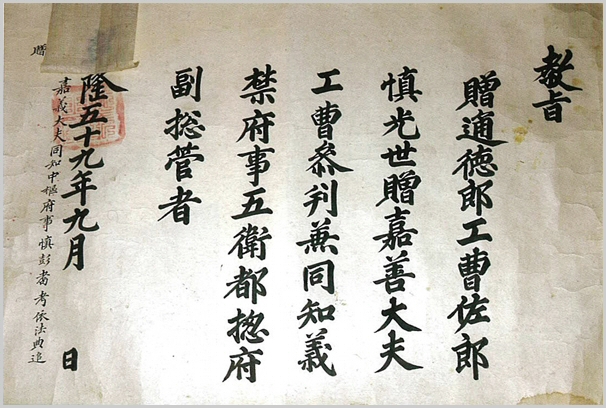 教旨
贈通徳郎工曹佐郎
慎光世贈嘉善大夫
工曹叅判兼同知義
禁府事五衛都揔府
副揔管者
隆五十九年九月 日
嘉義大夫同知中樞府事慎彭耉考依法典追
贈